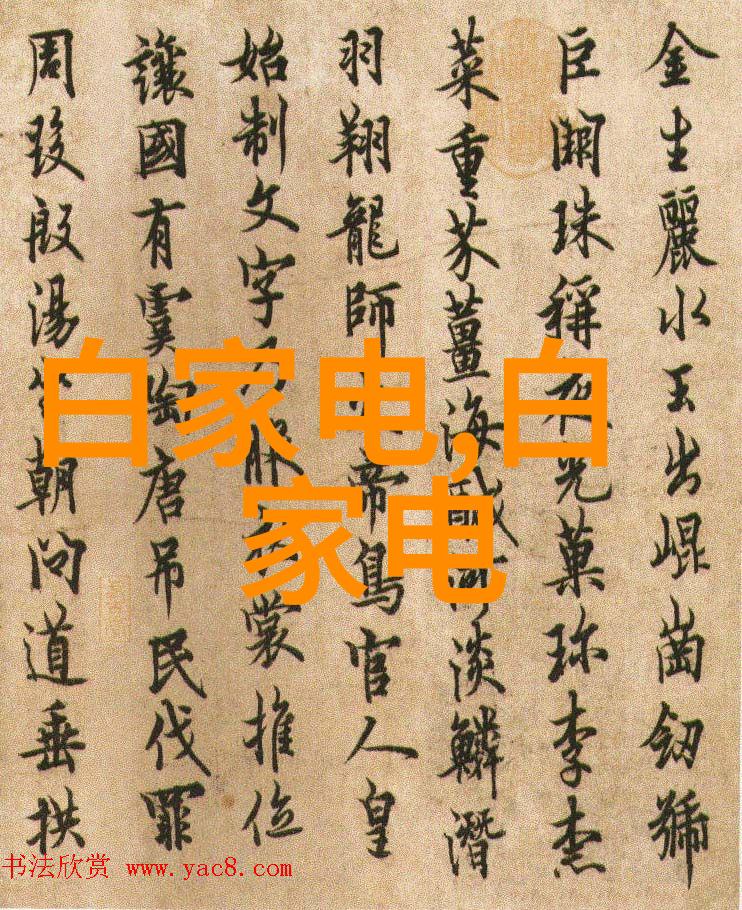 金生麗水玉出崐崗釼號
巨闕珠稱夜光菓珎李柰
菜重芥薑海鹹河淡鱗潛
羽翔龍師火帝鳥官人皇
始制文字乃服衣裳推位
讓國有虞陶唐吊民伐罪
周發殷湯坐朝問道垂拱
白家电,白
家电
书法欣赏 www.yac8.com